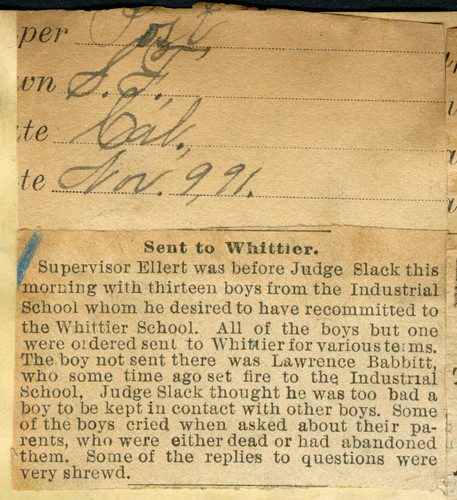 per Post
wn S. F.,
ate Cal.,
te Nov. 9, 91.
Sent to Whittier.
Supervisor Ellert was before Judge Slack this
morning with thirteen boys from the Industrial
School whom he desired to have recommitted to
the Whittier School. All of the boys but one
were ordered sent to Whittier for various terms.
The boy not sent there was Lawrence Babbitt,
who some time ago set fire to the Industrial
School. Judge Slack thought he was too bad a
boy to be kept in contact with other boys. Some
of the boys cried when asked about their pa-
rents, who were either dead or had abandoned
them. Some of the replies to questions were
very shrewd.